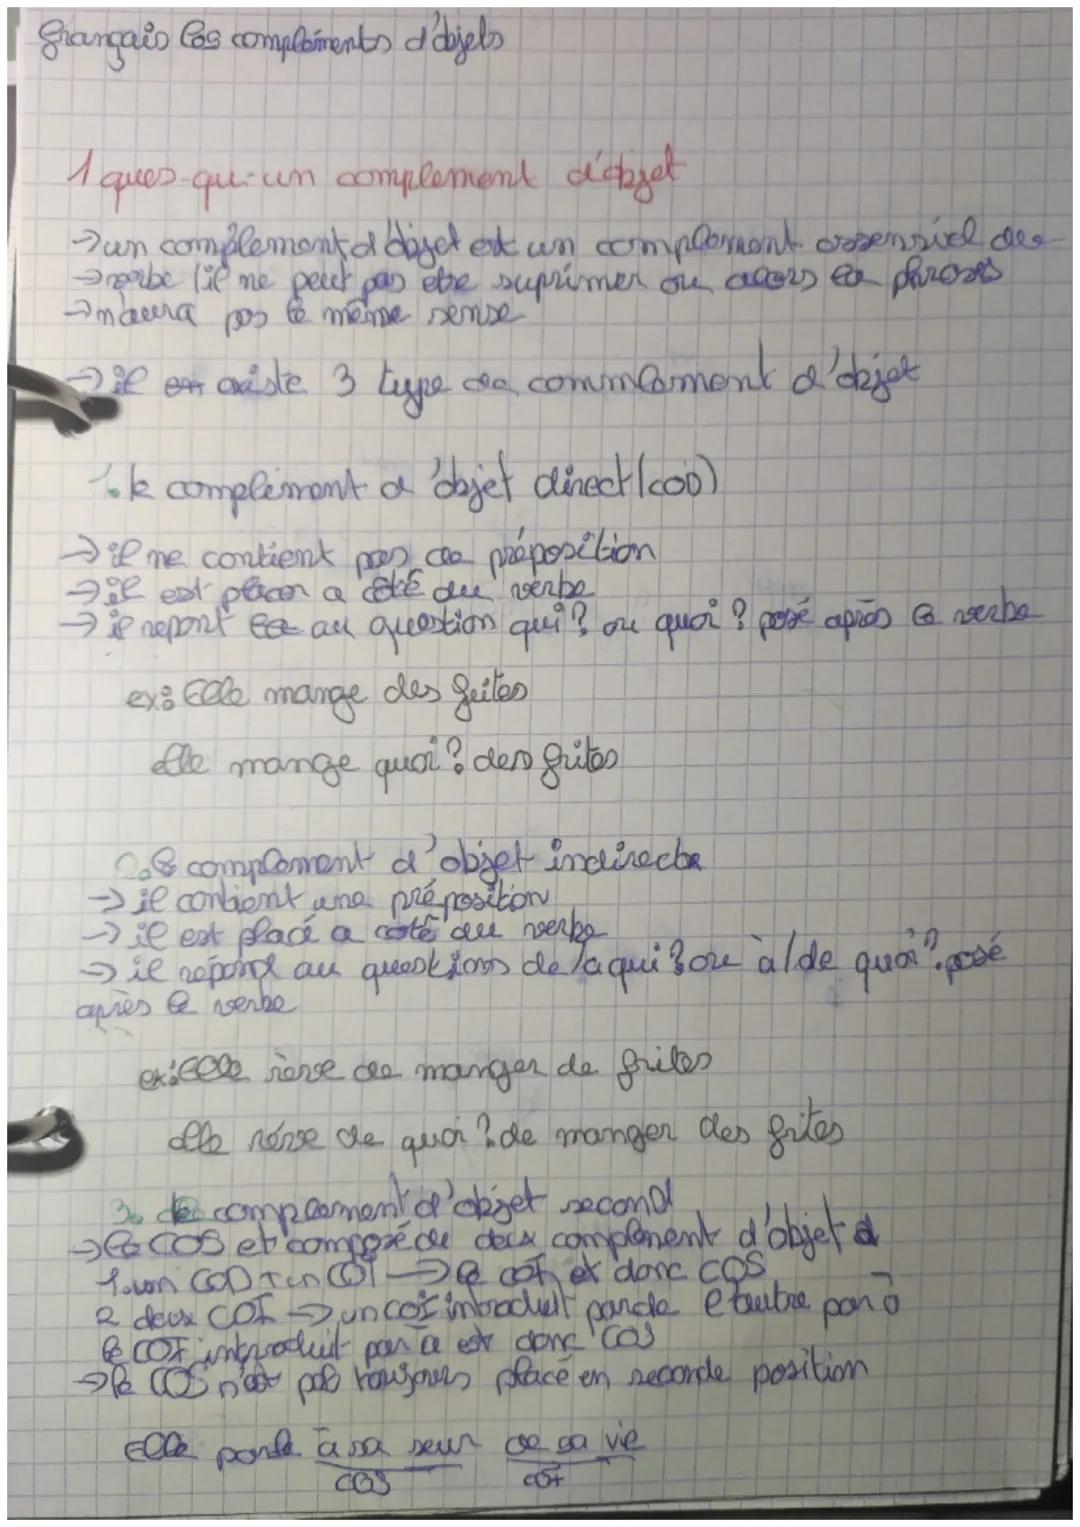 français les compléments d'objets
1 ques-qu-un complement d'objet
→un complément d'objet est un complément essensiel des
→verbe (il ne peut pas etre suprimer ou alors la phrases
→n'aura pas le même sense
→il en existe 3 type de commlement d'objet
1. le complément d'objet direct (COD)
→il ne contient pas de préposition
→il est placer a côté du verbe
→il repont au question qui? ou quoi? posé après le verbe
ex: Elle mange des frites
elle mange quoi? des frites
2. le complement d'objet indirecte
→ il contient une préposition
→ il est placé a coté du verbe
→ il répond au questions de/a qui? ou à/de quoi? posé
après le verbe
ex: Elle rève de manger de frites
elle rève de quoi? de manger des frites
3. le complement d'objet second
→le COS et composé de deux complement d'objet
1. un COD + un COI → le COI et donc COS
2 deux COI → un COI introduit par de l'autre par à
le COI introduit par à est donc COS
→le COS n'est pas toujours placé en seconde position
Elle parle à sa seur de sa vie
COS COI